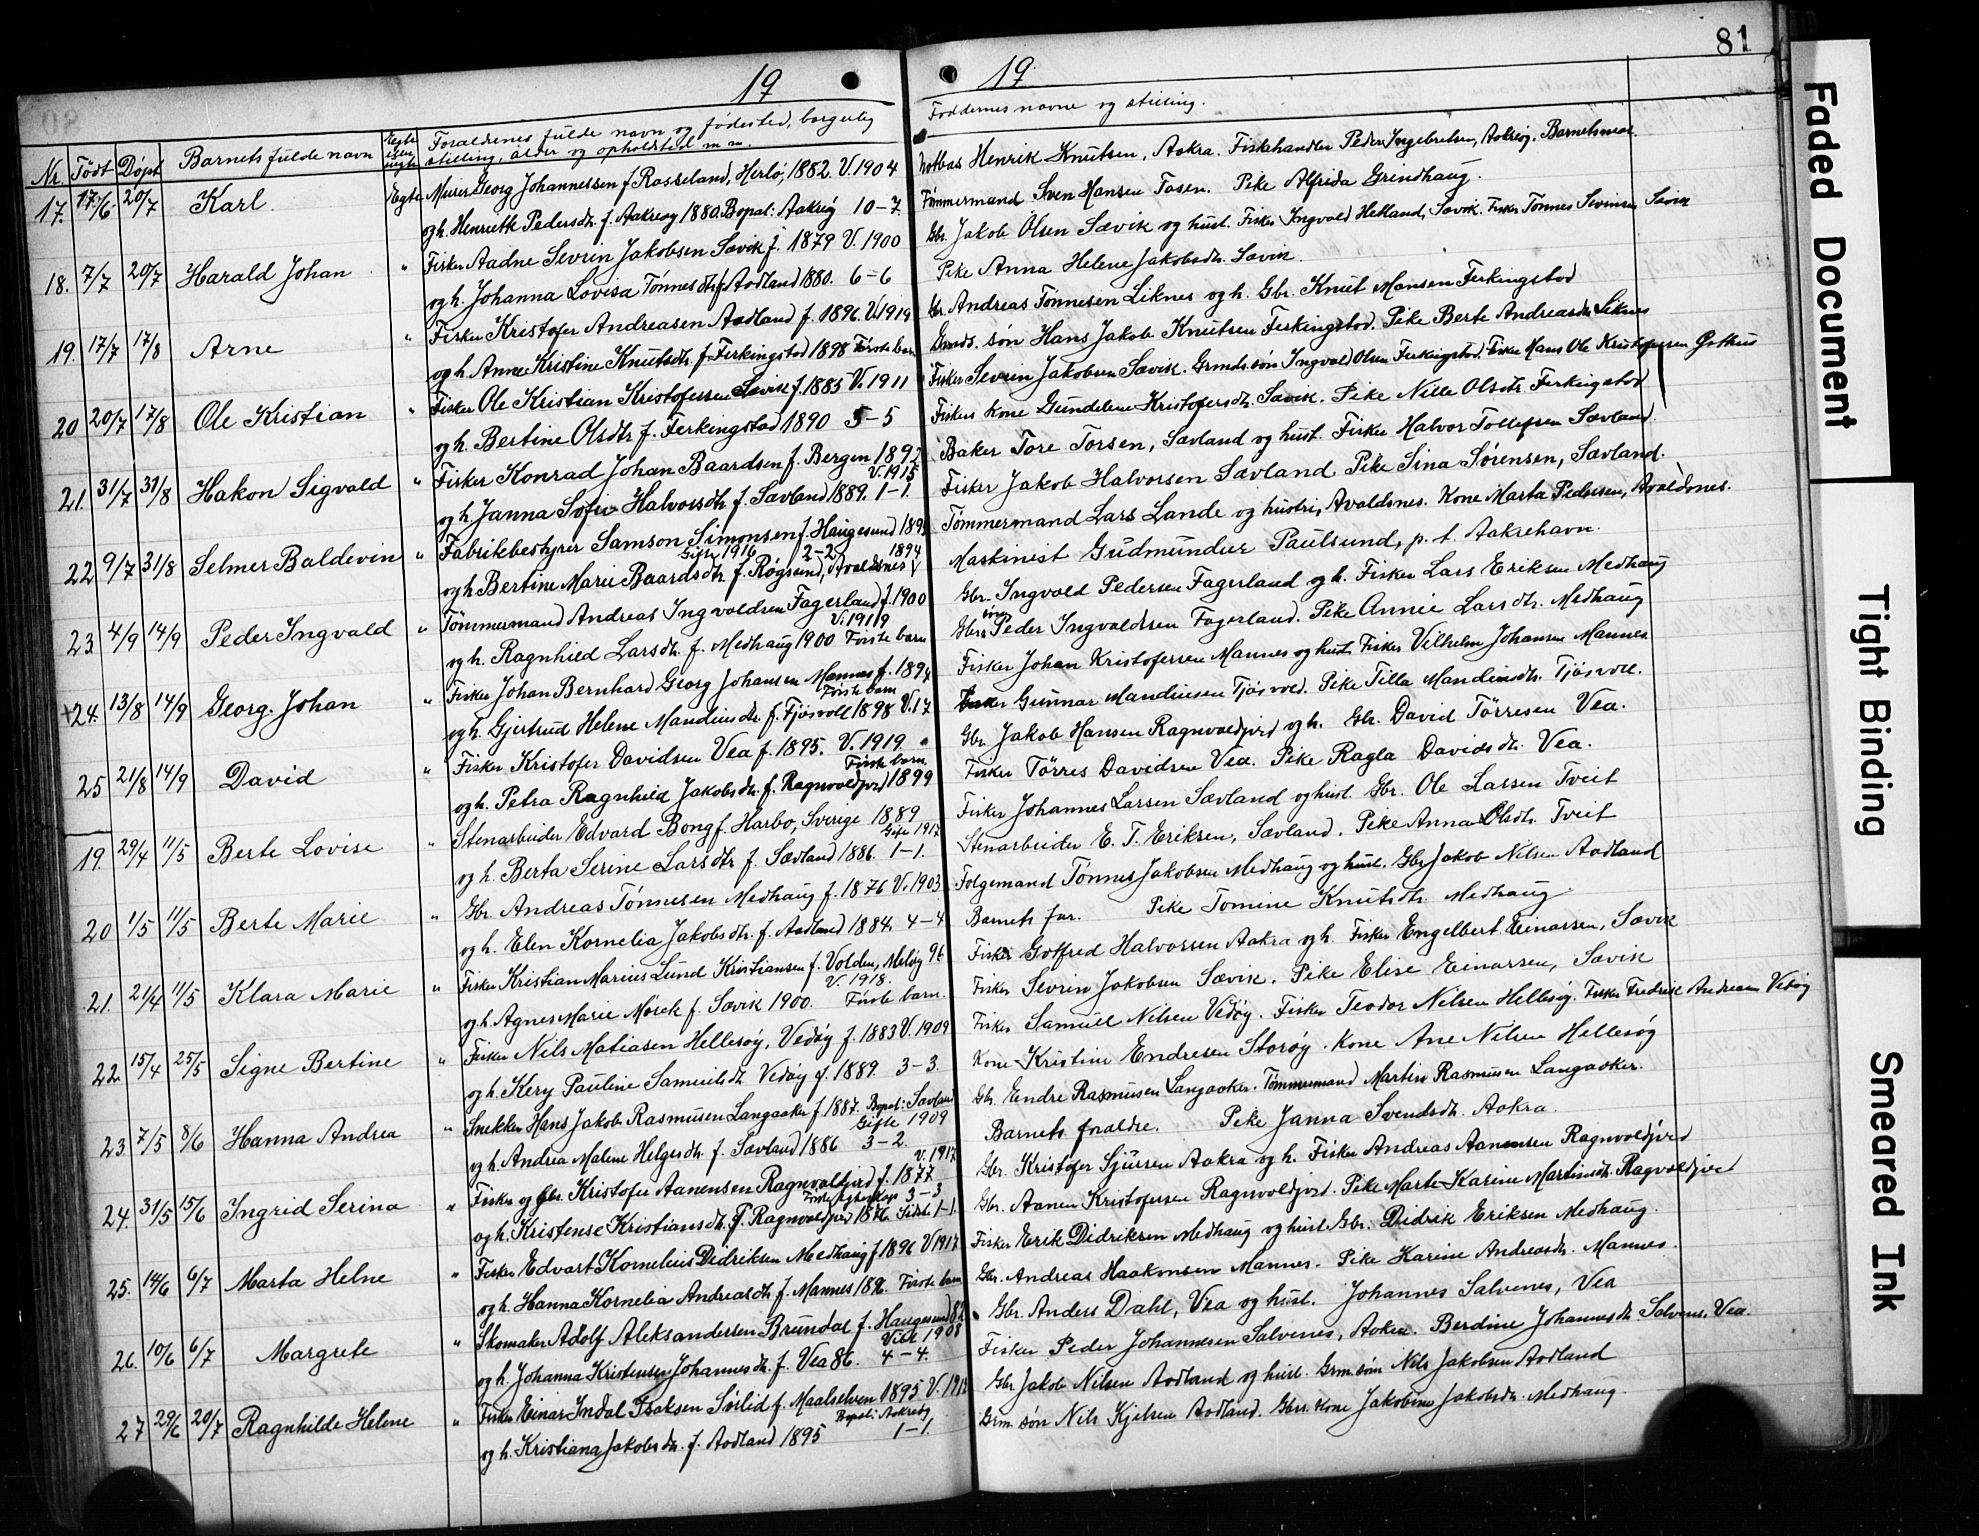 81
19
19.
Nr. Født Døpt Barnets fulde navn Egte eller uegte Forældrenes fulde navn og fødested, borgerlig stilling, alder og opholdsted m. m.
Faddernes navne og stilling.
17. 17/6 20/7 Karl. Egte Murer Georg Johannessen f. Rosseland, Herlø, 1882. V. 1904
og h. Henriette Pedersdtr. f. Aakreøy 1880. Bopæl: Aakrøy 10-7
Henrik Knutsen, Aakra. Fiskehandler Peder Ingebretsen, Aakrøy. Barnets mor.
Tømmermand Sven Hansen Tosen. Pike Alfrida Grendhaug.
18. 7/7 20/7 Harald Johan " Fisker Aadne Sevrin Jakobsen Sævik f. 1879 V. 1900
og h. Johanna Lovisa Tønnesdtr. f. Aadland 1880. 6-6
Gbr. Jakob Olsen Sævik og hust. Fisker Ingvald Hetland, Sævik. Fisker Tønnes Sevrinsen Sævik
Pike Anna Helene Jakobsdtr. Sævik.
19. 17/7 17/8 Arne " Fisker Kristofer Andreasen Aadland f. 1896. V. 1919
og h. Anne Kristine Knutsdtr. f. Ferkingstad 1898 Første barn
Gbr. Andreas Tønnesen Liknes og h. Gbr. Knut Mansen Ferkingstad
Grmds. søn Hans Jakob Knutsen Ferkingstad. Pike Berte Andreasdtr. Liknes
20 20/7 17/8 Ole Kristian " Fisker Ole Kristian Kristofersen Sævik f. 1885 V. 1911
og h. Bertine Olsdtr. f. Ferkingstad 1890 5-5
Fisker Sevrin Jakobsen Sævik. Grmds. søn Ingvald Olsen Ferkingstad. Fisker Hans Ole Kristofersen
Fiskers kone Gundeline Kristofersdtr. Sævik. Pike Nille Olsdtr. Ferkingstad
21. 31/7 31/8 Hakon Sigvald " Fisker Konrad Johan Baardsen f. Bergen 1892
V. 1915
og h. Janna Sofie Halvorsdtr. f. Sævland 1889. 1-1.
Baker Tore Torsen, Sævland og hust. Fisker Halvor Tollefsen Sævland.
Fisker Jakob Halvorsen Sævland. Pike Sina Sørensen, Sævland.
22 9/7 31/8 Selmer Baldevin " Fabrikbestyrer Samson Simonsen f. Haugesund
Gifte 1916 2-2 1894
og h. Bertine Marie Baardsdtr. f. Røgsund, Avaldsnes
Tømmermand Lars Lande og hustru, Avaldsnes. Kone Marta Pedersen, Avaldsnes.
Maskinist Gudmunder Paulsund, p. t. Aakrehavn.
23 4/9 14/9 Peder Ingvald " Tømmermand Andreas Ingvaldsen Fagerland f. 1900
V. 1919
og h. Ragnhild Larsdtr. f. Medhaug 1900 Første barn
Gbr. Ingvald Pedersen Fagerland og h. Fisker Lars Eriksen Medhaug
Gbrs. søn Peder Ingvaldsen Fagerland. Pike Annie Larsdtr. Medhaug
24. 13/8 14/9 Georg Johan " Fisker Johan Bernhard Georg Johansen Mannes f. 1894
Første barn
og h. Gjertrud Helene Mandiusdtr. f. Tjøsvoll 1898 V. 17
Fisker Johan Kristofersen Mannes og hust. Fisker Vilhelm Johansen Mannes
Fisker Gunnar Mandiusen Tjøsvold. Pike Tilla Mandiusdtr. Tjøsvoll.
25 21/8 14/9 David " Fisker Kristofer Davidsen Vea f. 1895. V. 1919
Første barn.
og h. Petra Ragnhild Jakobsdtr. f. Ragnvoldjord 1899
Gbr. Jakob Hansen Ragnvaldjord og h. Gbr. David Tørresen Vea.
Fisker Tørres Davidsen Vea. Pike Ragla Davidsdtr. Vea.
19. 29/4 11/5 Berte Lovise " Stenarbeider Edvard Bong f. Harbo, Sverige 1889
Gifte 1917
og h. Berta Serine Larsdtr. f. Sævland 1886. 1-1.
Fisker Johannes Larsen Sævland og hust. Gbr. Ole Larsen Tveit
Stenarbeider E. T. Eriksen, Sævland. Pike Anna Olsdtr. Tveit
20 1/5 11/5 Berte Marie " Gbr. Andreas Tønnesen Medhaug f. 1876 V. 1903
og h. Elen Kornelia Jakobsdtr. f. Aadland 1884. 4-4
Folgemand Tønnes Jakobsen Medhaug og hust. Gbr. Jakob Nilsen Aadland
Barnets far. Pike Tomine Knutsdtr. Medhaug.
21. 21/4 11/5 Klara Marie " Fisker Kristian Marius Lund Kristiansen f. Volden, Meløy 96
V. 1918.
og h. Agnes Marie Morek f. Sævik 1900. Første barn.
Fisker Gotfred Halvorsen Aakra og h. Fisker Engelbert Einarsen, Sævik
Fisker Sevrin Jakobsen Sævik. Pike Elise Einarsen, Sævik
22. 15/4 25/5 Signe Bertine " Fisker Nils Matiasen Hellesøy, Vedøy f. 1883 V. 1909
og h. Kery Pauline Samuelsdtr. Vedøy f. 1889. 3-3.
Fisker Samuel Nilsen Vedøy. Fisker Teodor Nilsen Hellesøy. Fisker Fredrik Andreasen Vedøy
Kone Kristine Endresen Storøy. Kone Ane Nilsen Hellesøy
23. 7/5 8/6 Hanna Andrea " Snekker Hans Jakob Rasmusen Langaaker f. 1887. Bopæl: Sævland
Gifte 1909
og h. Andrea Malene Helgesdtr. f. Sævland 1886 3-2.
Gbr. Endre Rasmusen Langaaker. Tømmermand Martin Rasmusen Langaaker.
Barnets forældre. Pike Janna Svendsdtr. Aakra.
24. 31/5 15/6 Ingrid Serina " Fisker og Gbr. Kristofer Aanensen Ragnvaldjord f. 1877
V. 1917
og h. Kristense Kristiansdtr. f. Ragnvaldjord 1876. Sidste 1-1. Første egteskap 3-3
Gbr. Kristofer Sjursen Aakra og h. Fisker Andreas Aanensen Ragnvoldjord
Gbr. Aanen Kristofersen Ragnvoldjord. Pike Marte Karine Martinsdtr. Ragvoldjord
25. 14/6 6/7 Marta Helne " Fisker Edvart Kornelius Didriksen Medhaug f. 1896 V. 1917
og h. Hanna Kornelia Andreasdtr. f. Mannes 1896. Første barn
Fisker Erik Didriksen Medhaug og hust. Gbr. Didrik Eriksen Medhaug.
Gbr. Andreas Haakonsen Mannes. Pike Karine Andreasdtr. Mannes.
26. 10/6 6/7 Margrete " Skomaker Adolf Aleksandersen Brundal f. Haugesund 82
Viet 1908
og h. Johanna Kristensen Johannesdtr. f. Vea 86. 4-4.
Gbr. Anders Dahl, Vea og hust. Johannes Salvenes, Vea
Fisker Peder Johannesen Salvenes, Aakra. Berdine Johannesdtr. Salvenes, Vea.
27 29/6 20/7 Ragnhilde Helene " Fisker Einar Indal Isaksen Solid f. Maalselven 1895 V. 1918
Bopæl: Aakrøy
og h. Kristiana Jakobsdtr. f. Aadland 1895 1-1.
Gbr. Jakob Nilsen Aadland og hust. Grm. søn Nils Jakobsen Aadland
Grm. søn Nils Kjelsen Aadland. Gbrs. kone Jakobine Jakobsdtr. Medhaug.
Faded Document
Tight Binding
Smeared Ink